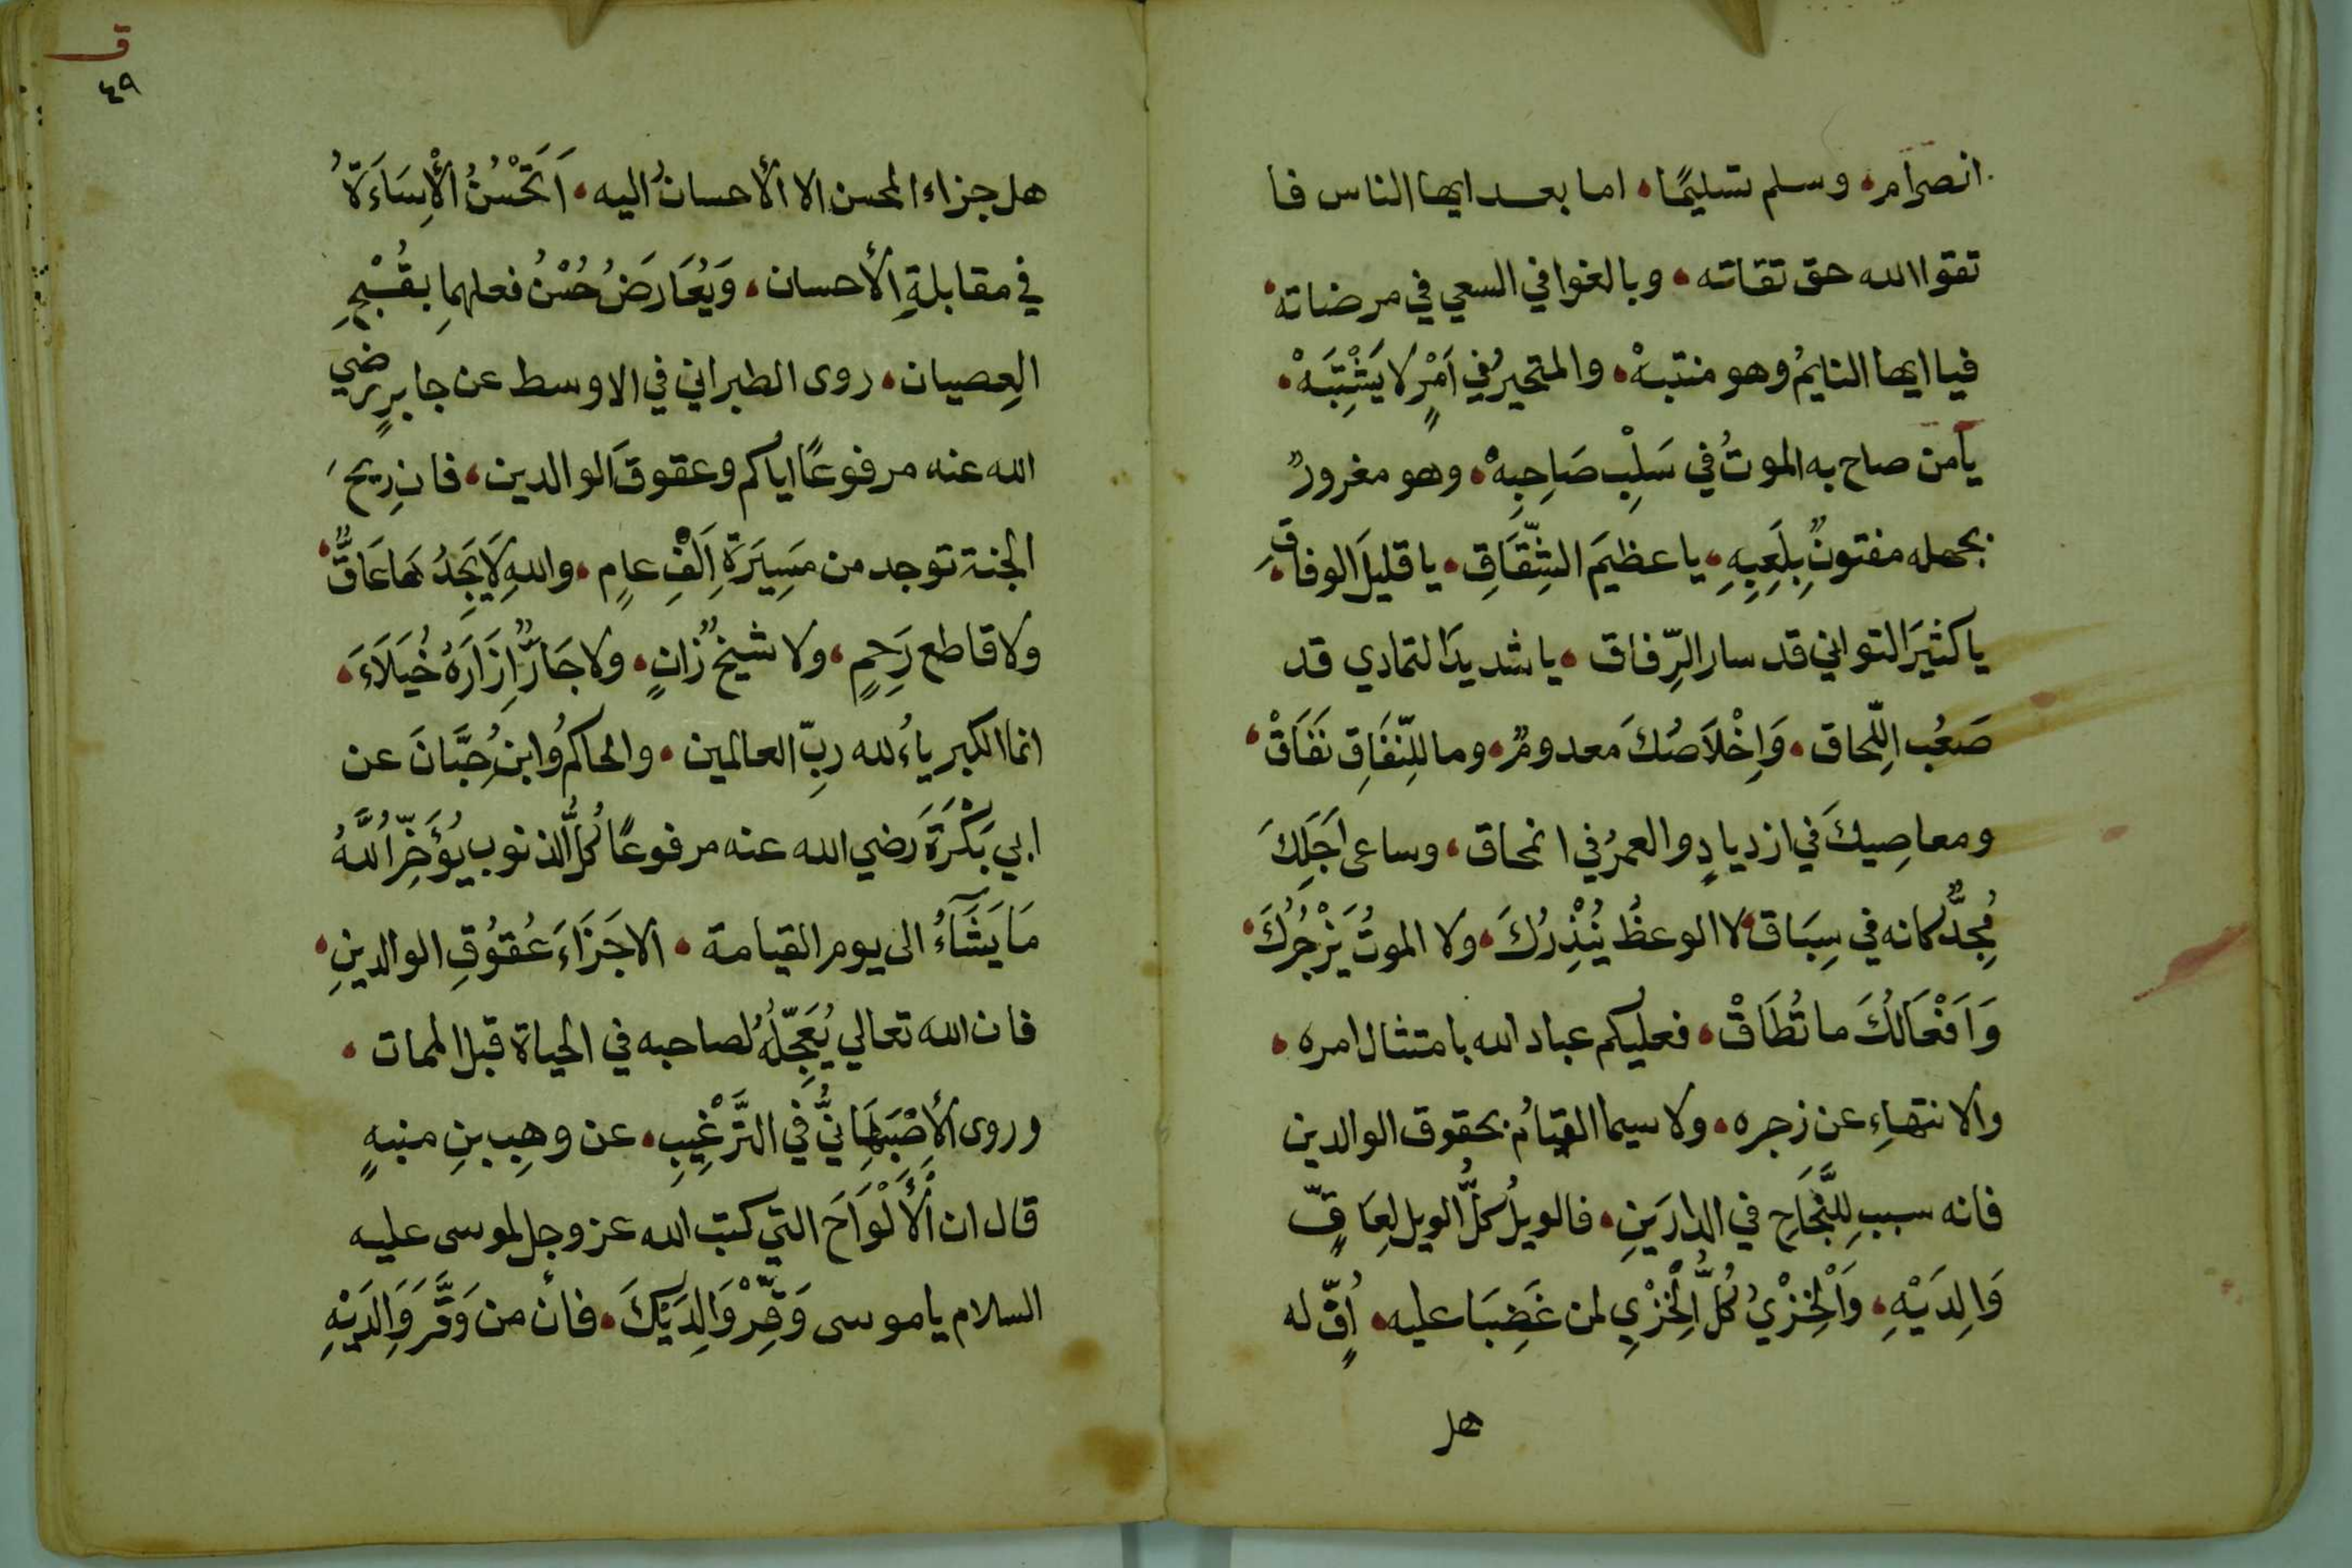 انصرام، وسلم تسليمًا، اما بعد ايها الناس فا
تقوا الله حق تقاته، وبالغوا في السعي في مرضاته،
فيا ايها النايمُ وهو منتبهْ، والمتحيرُ في اَمْرٍ لا يَشْتَبَهْ،
يا من صاح به الموتُ في سَلِبْ صَاحِبِهْ، وهو مغرورٌ
بجهله مفتونٌ بِلَعِبِهِ، يا عظيمَ الشِّقَاقِ، يا قليلَ الوفاقِ،
يا كثيَر التواني قد سار الرِّفاق، يا شديدَ التمادي قد
صَعُب اللِّحاق، وَاِخْلاَصُكَ معدومٌ، وما للِنّفَاقِ نَفَاقْ،
ومعاصِيكَ في ازديادٍ والعمرُ في انمحاق، وساعى اَجَلِكَ
مُجِدٌّ كانه في سِبَاق، لا الوعظُ يُنْذِرُكَ، ولا الموتُ يَزْجُرُكَ،
وَاَفْعَالُكَ ما تُطَاقْ، فعليكم عباد الله بامتثال امره،
والانتهاءِ عن زجره، ولا سيما القيامُ بحقوق الوالدين
فانه سبب لِلنَّجَاحِ في الدارَينِ، فالويلُ كلُّ الويل لِعَاقٍّ
وَالِدَيْهِ، وَالْخِزْيُ كُلُّ الْخِزْيِ لمن غَضِبَا عليه، اُفٍّ له
هل
ق
٤٩
هل جزاء المحسن الا الأحسانُ اليه، اَتَحْسُنُ الْأِسَاءَةُ
في مقابلةِ الأحسان، وَيُعَارَضُ حُسْنُ فعلهمِا بقُبْحِ
العِصيان، روى الطبراني في الاوسط عن جابرٍ رضي
الله عنه مرفوعًا اياكم وعقوقَ الوالدين، فان رِيحَ
الجنة توجد من مَسِيَرَةِ اَلْفِ عامٍ، واللهِ لَا يَجِدُ هَا عَاقٌّ،
ولا قاطع رَحِمٍ، ولا شيخٌ زانٍ، ولا جَارٌّ اِزَارَهُ خُيَلَاَءَ،
انما الكبرياءُ لله ربّ العالمين، والحاكمُ وابنُ حِبَّانَ عن
ابي بَكْرَةَ رَضي الله عنه مرفوعًا كُلُّ الذنوب يُؤَخِّرُ اللَّهُ
مَا يَشَآءُ الى يوم القيامة، الا جَزَاءَ عُقوُقِ الوالدينِ،
فان الله تعالي يُعَجِّلُهُ لصاحبه في الحياة قبل الممات،
وروى الأصْبَهَانيُّ في التَّرْغِيبِ، عن وهِب بنِ منبهٍ
قال ان الْأَلْوَاَحَ التي كتب الله عز وجل لموسى عليه
السلام يا موسى وَقِّرْ وَالِدَيْكَ، فانَّ من وَقَّرَ وَالِدَيْهِ